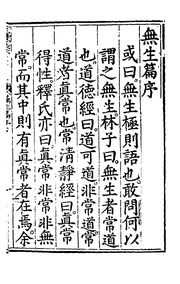 無生篇序
或曰無生極則語也敢問何以
謂之無生林子曰無生者常道
也道德經曰道可道非常道常
道者眞常也常清靜經曰眞常
得性釋氏亦曰眞常非常非無
常而其中則有眞常者在焉余